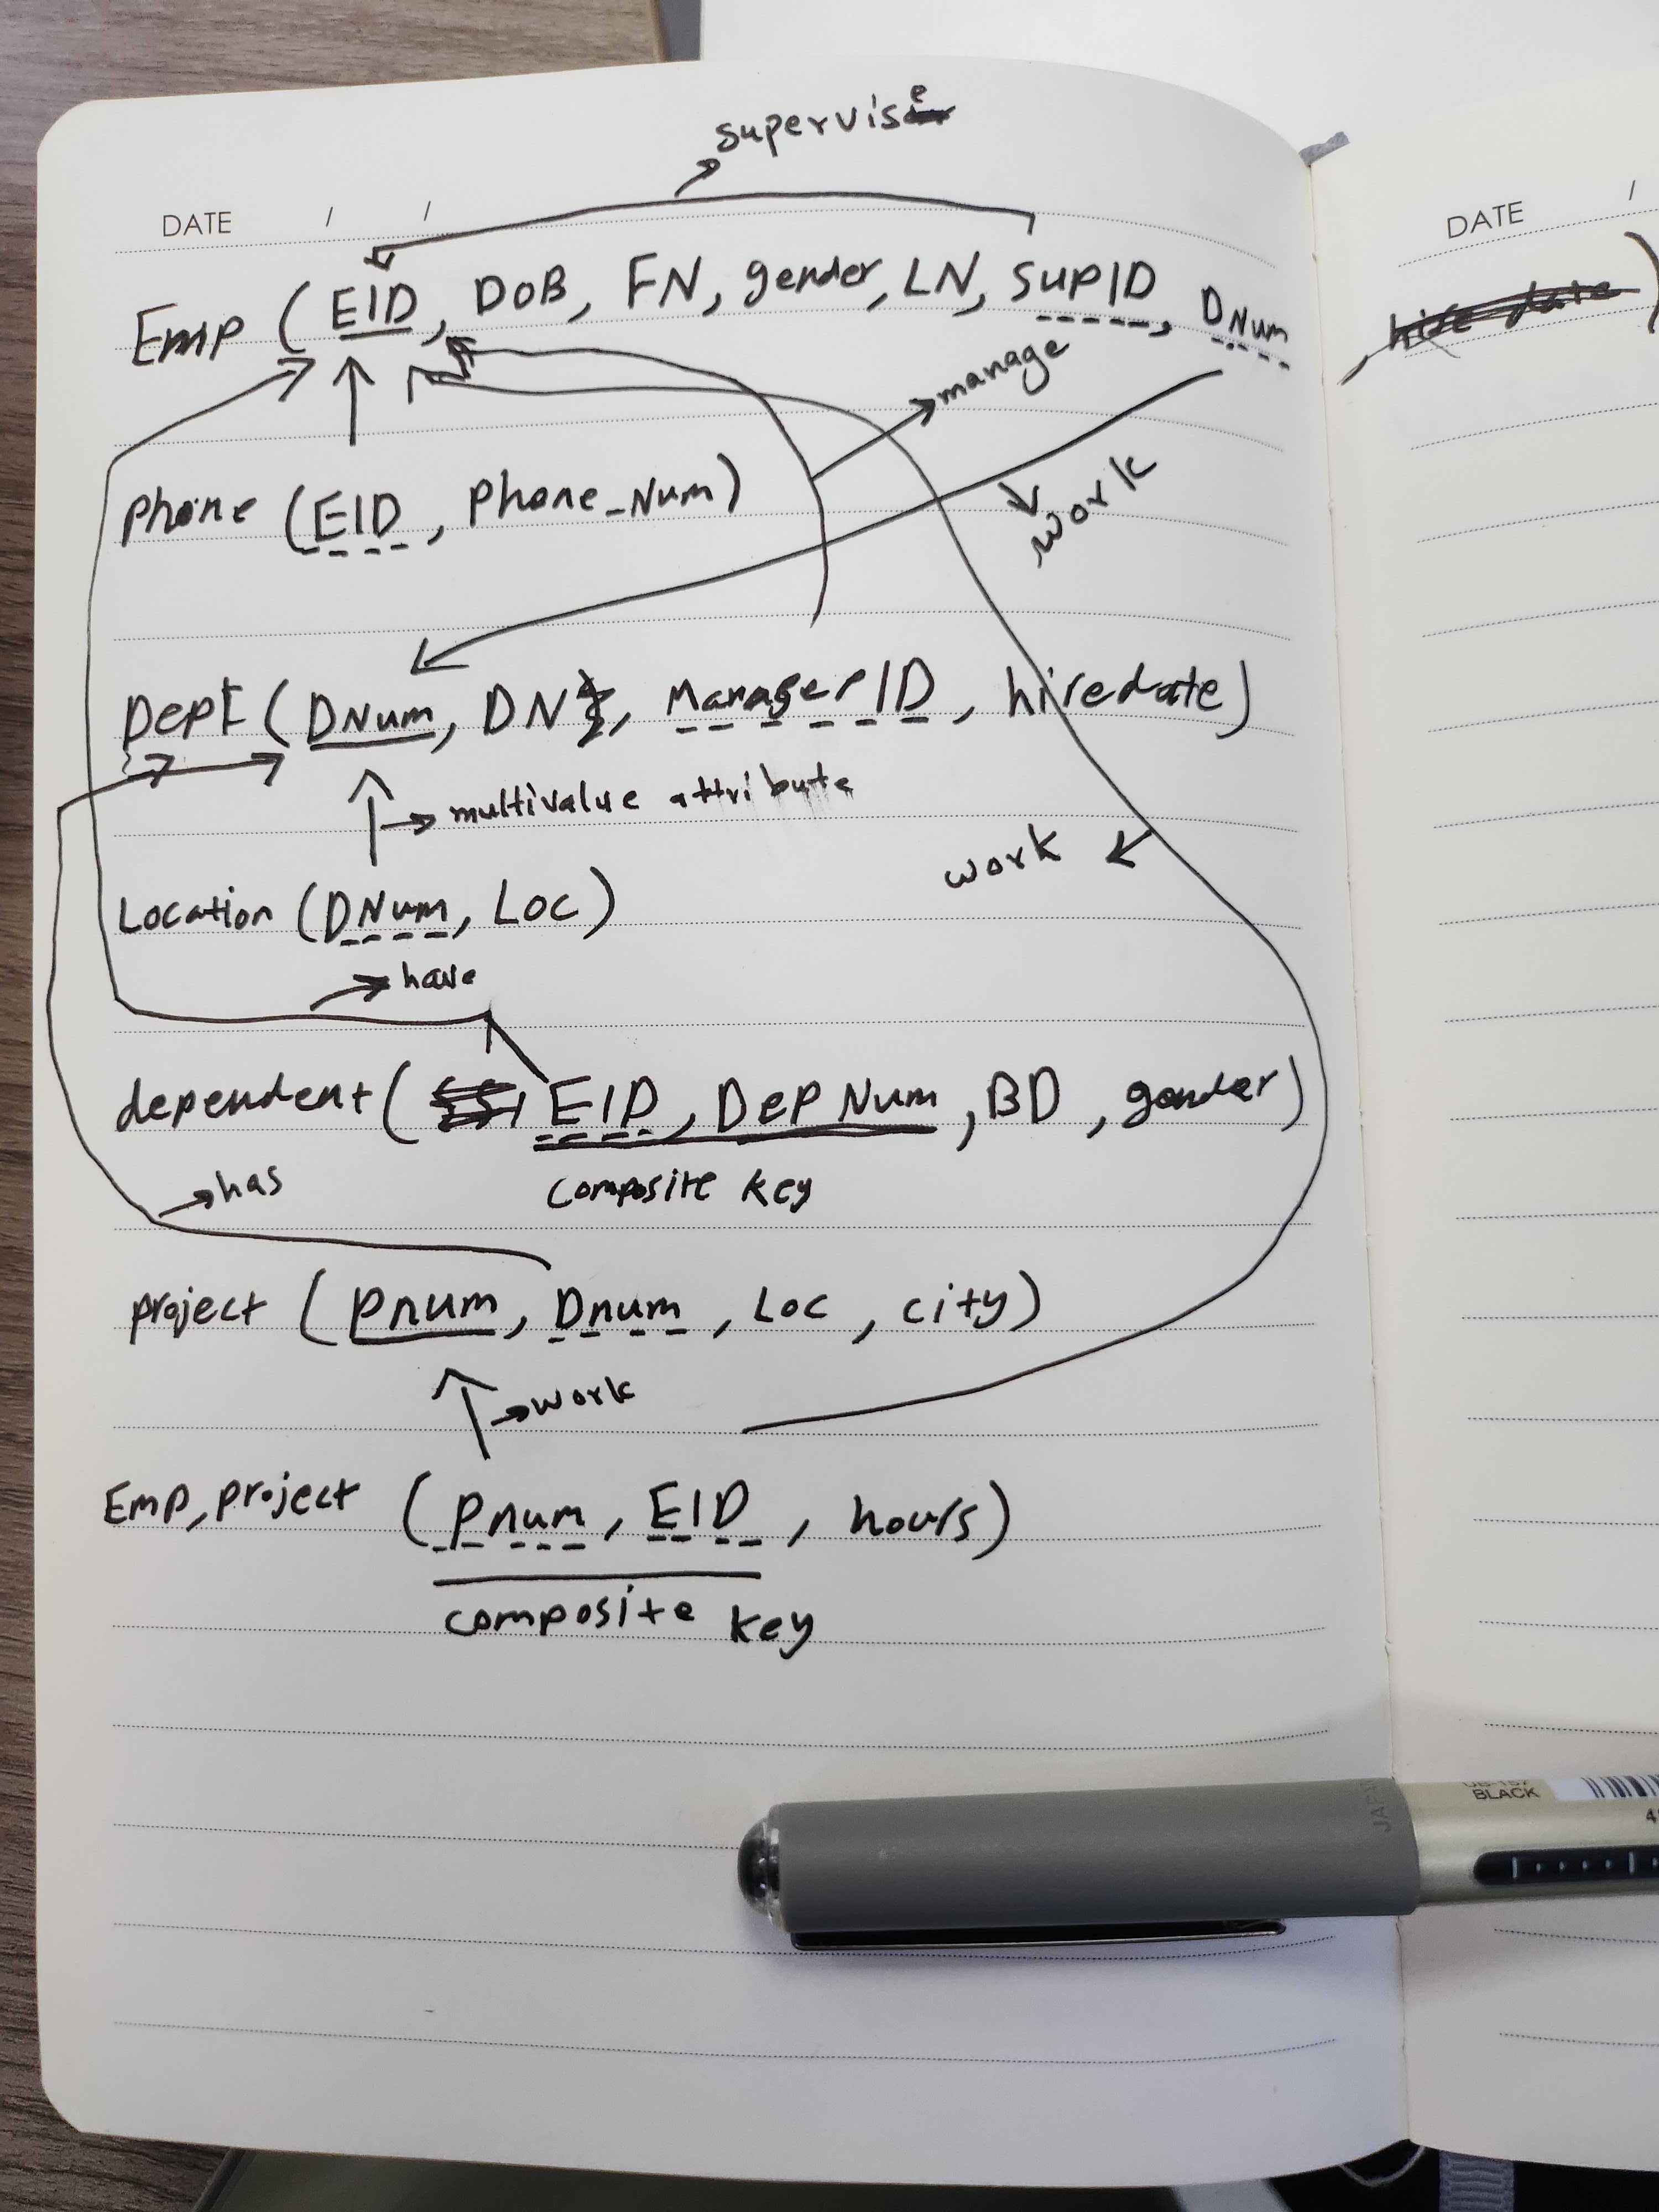 supervise
DATE / /
DATE /
Emp (EID, DOB, FN, gender, LN, SUPID, DNum, hire date)
manage
phone (EID, Phone_Num)
work
Dept (DNum, DN, Manager ID, hiredate)
multivalue attribute
work
Location (DNum, Loc)
have
dependent( EID, Dep Num, BD, gender)
has
composite key
project (pnum, Dnum, Loc, city)
work
Emp, project (pnum, EID, hours)
composite key
JAPAN
UB-157
BLACK